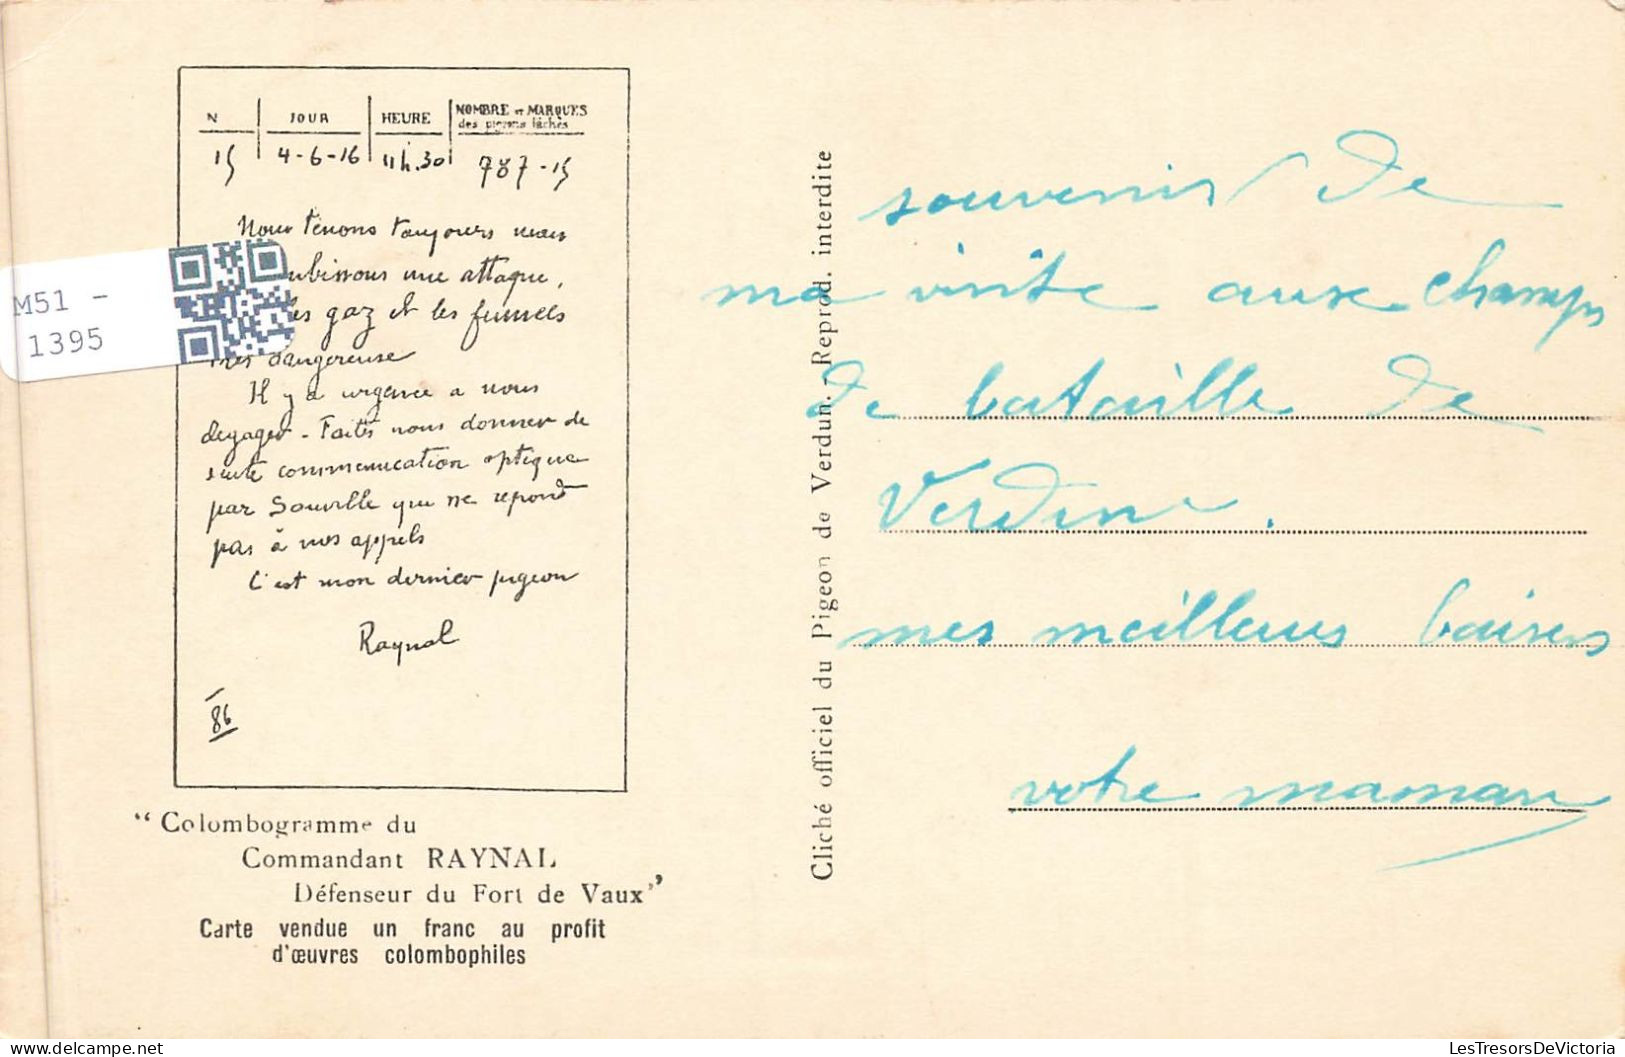 N JOUR HEURE NOMBRE et MARQUES
des pigeons lâchés
15 4-6-16 11h.30 787-15
Nous tenons toujours mais
ubissons une attaque,
es gaz et les fumees
tres dangereuse
Il y a urgence a nous
degager - Faites nous donner de
suite communication optique
par Souville qui ne repond
pas à nos appels
C'est mon dernier pigeon
Raynal
86
M51 -
1395
“Colombogramme du
Commandant RAYNAL
Défenseur du Fort de Vaux”
Carte vendue un franc au profit
d'œuvres colombophiles
Cliché officiel du Pigeon de Verdun. Reprod. interdite
souvenir de
ma visite aux champs
de bataille de
Verdun.
mes meilleurs baisers
votre maman
LesTresorsDeVictoria